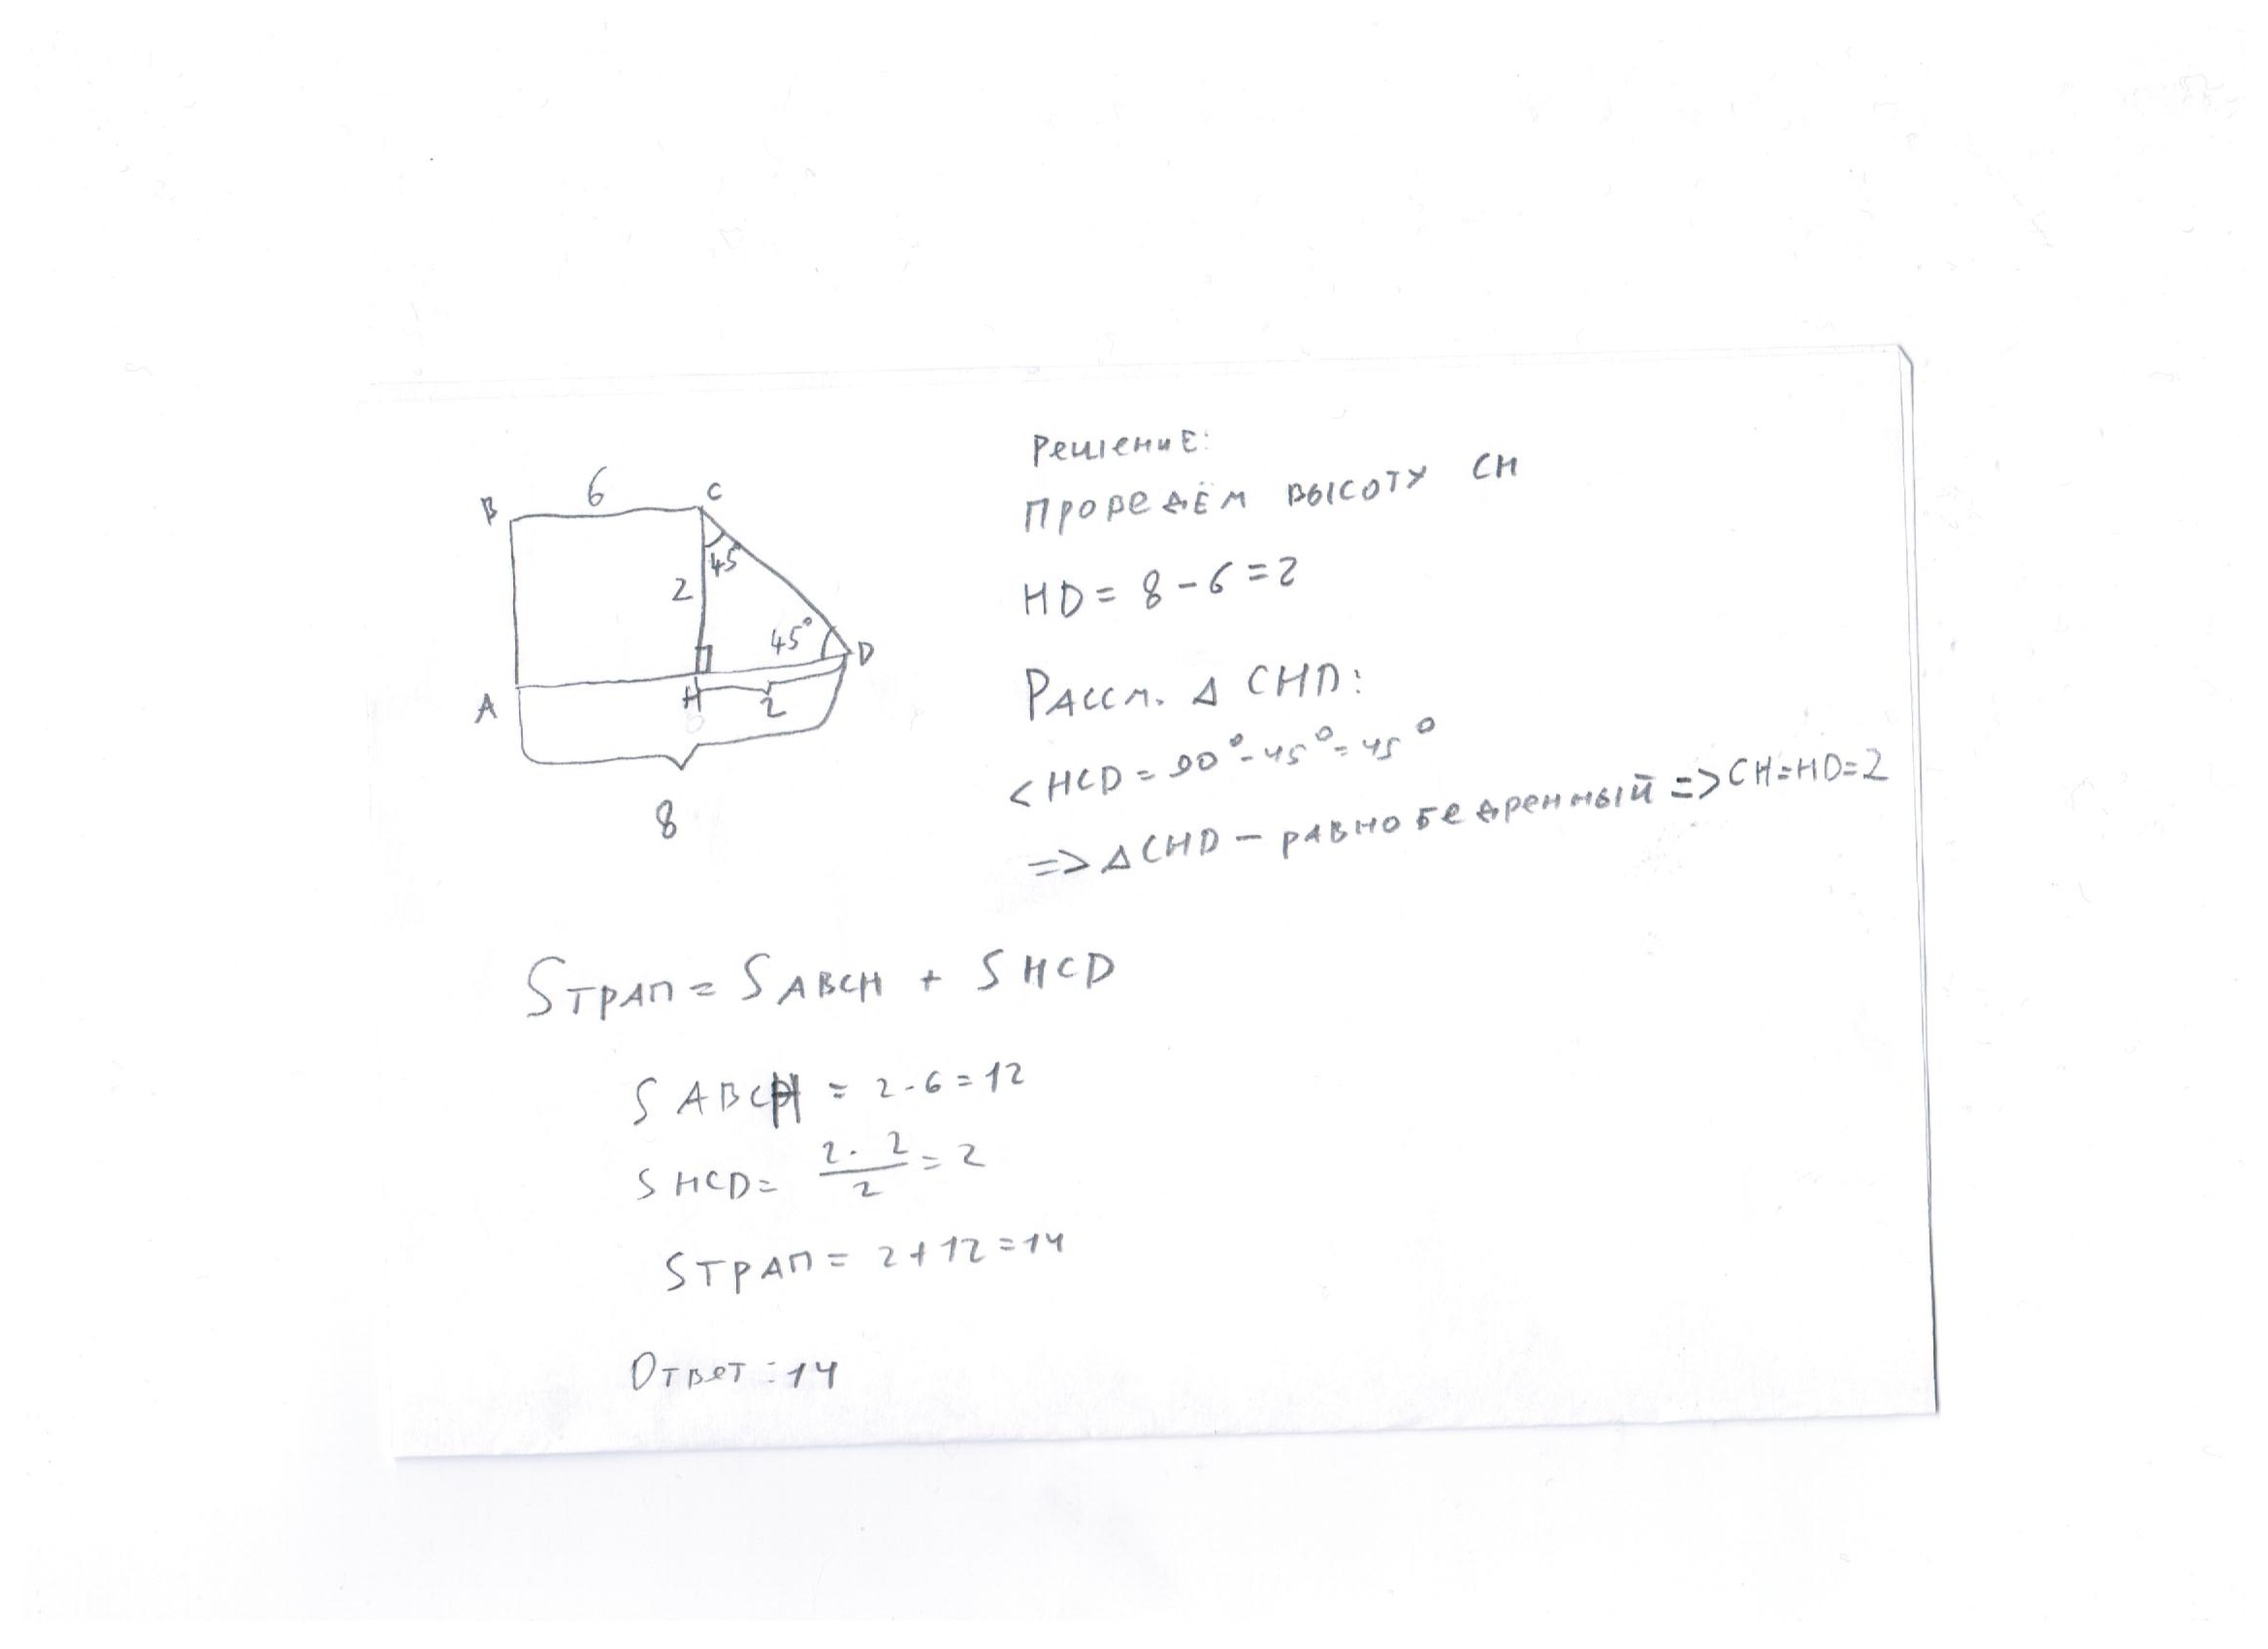 B
6
C
45
2
45°
D
A
H
2
8
Решение:
Проведём высоту CH
HD = 8 - 6 = 2
Рассм. Δ CHD:
< HCD = 90° - 45° = 45°
=> Δ CHD - равнобедренный => CH = HD = 2
Sтрап = S ABCH + S HCD
S ABCH = 2 · 6 = 12
S HCD = 2 · 2 / 2 = 2
Sтрап = 2 + 12 = 14
Ответ: 14